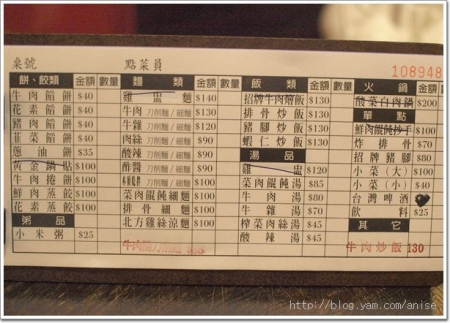 桌號 點菜員
108948
餅、餃類 金額 數量
牛肉餡餅 $40
花素餡餅 $40
豬肉餡餅 $40
韭菜餡餅 $40
蔥油餅 $35
黃金鍋貼 $100
牛肉捲餅 $100
鮮肉蒸餃 $100
花素蒸餃 $100
粥品
小米粥 $25
麵類 金額 數量
雞盅麵 $140
牛肉 刀削麵/細麵 $130
牛雜 刀削麵/細麵 $130
肉絲 刀削麵/細麵 $90
酸辣 刀削麵/細麵 $90
酢醬 刀削麵/細麵 $100
刀削麵/細麵 $100
菜肉餛飩細麵 $100
排骨細麵 $100
北方雞絲涼麵 $100
飯類 金額 數量
招牌牛肉燴飯 $130
排骨炒飯 $130
豬腳炒飯 $130
蝦仁炒飯 $130
湯品
雞盅 $120
菜肉餛飩湯 $85
牛肉湯 $80
牛雜湯 $70
榨菜肉絲湯 $45
酸辣湯 $45
火鍋 金額 數量
酸菜白肉鍋 $200
單點
鮮肉餛飩抄手 $100
炸排骨 $70
招牌豬腳 $100
小菜(大) $100
小菜(小) $40
台灣啤酒
飲料 $25
其它
牛肉炒飯 130
http://blog.yam.com/anise